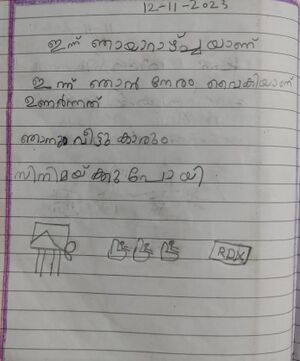 12-11-2023
ഇന്ന് ഞായറാഴ്ച്ചയാണ്
ഇന്ന് ഞാൻ നേരം വൈകിയാണ്
ഉണർന്നത്
ഞാനും വീട്ടുകാരും
സിനിമയ്ക്കു പോയി
RDX